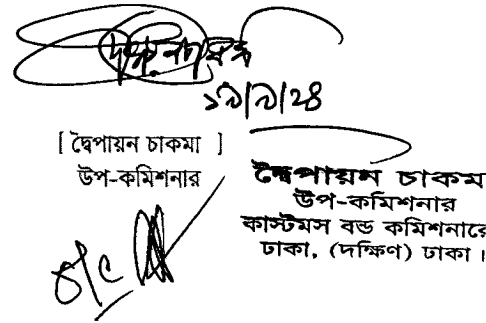 ১৯/৯/২৪
[ দ্বৈপায়ন চাকমা ]
উপ-কমিশনার
দ্বৈপায়ন চাকম
উপ-কমিশনার
কাস্টমস বন্ড কমিশনারে
ঢাকা, (দক্ষিণ) ঢাকা।